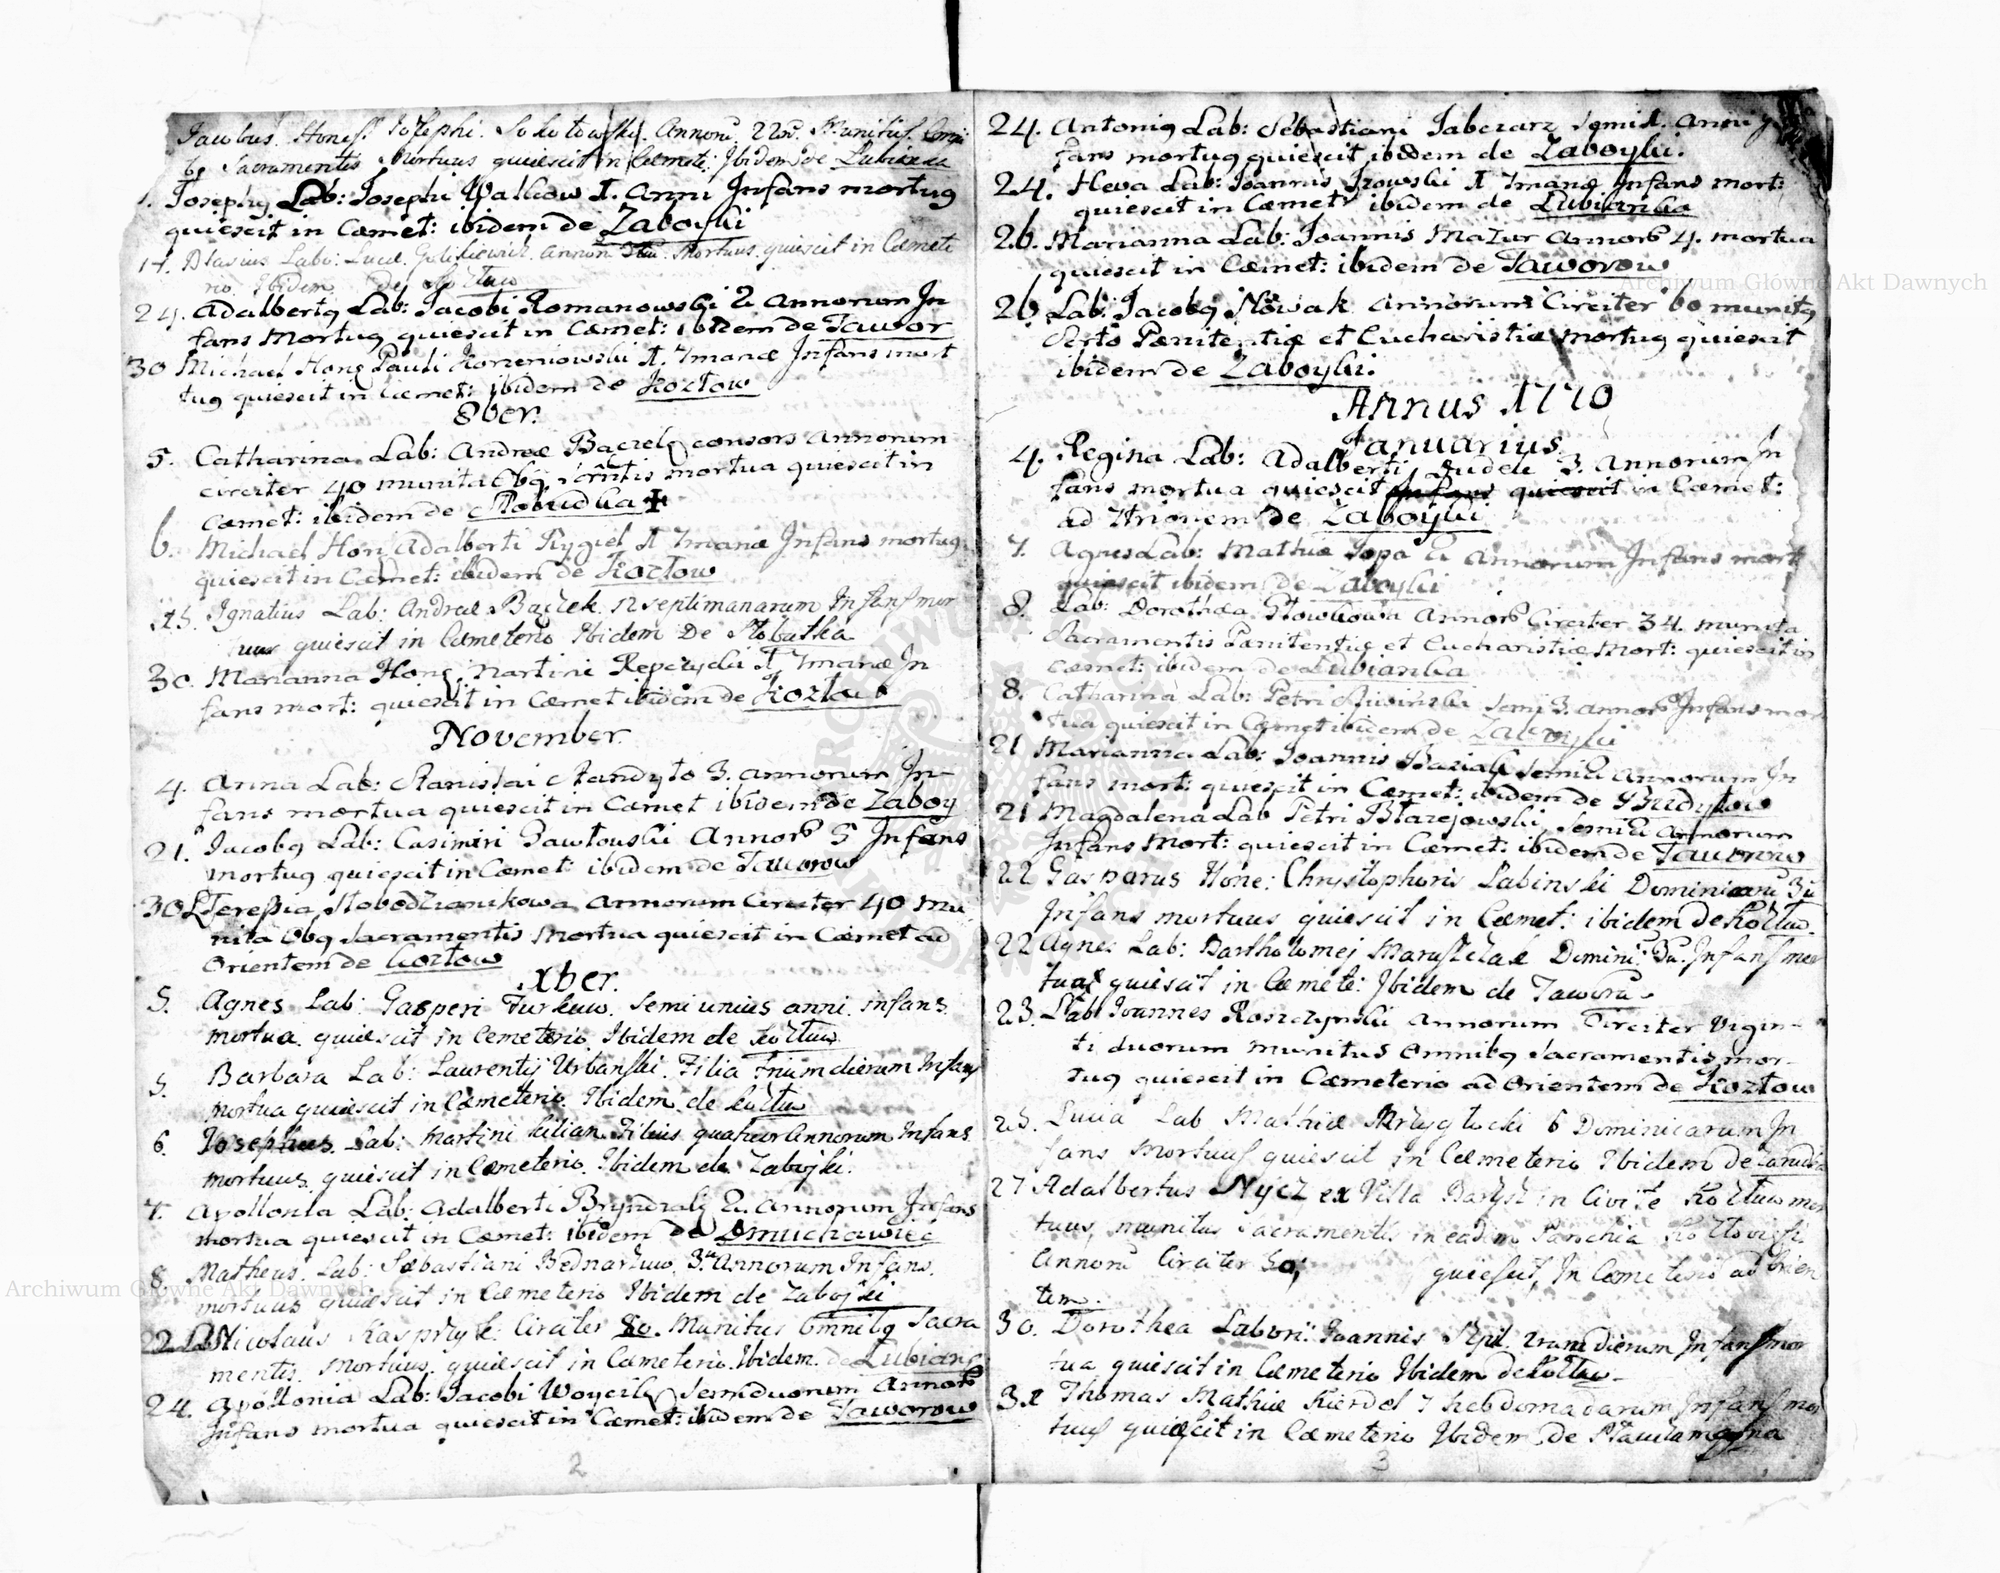 Jacobus Honest Josephi Sokołowski Annorū 22oru Munitus Omni
bq Sacramentis Mortuus quiescit in Cæmete: Ibidem de Lubianka
Josephq Lab: Josephi Walkow 1. Anni Infans mortuq
quiescit in Cæmet: ibidem de Zaboyki
17. Blasius Labo: Lucæ Mortuus quiescit in Cæmete
rio Ibidem de Kozłow
24. Adalbertq Lab: Jacobi Romanowski 2. Annorum In
fans Mortuq quiescit in Cæmet: ibidem de Jawor
30 Michael Hong Pauli Korzeniowski 1. 7manæ Infans mort
tuq quiescit in Cæmet: ibidem de Kozłow
8ber.
5. Catharina Lab: Andreæ Baczek consors annorum
circiter 40 munita Obq Scrntis mortua quiescit in
Cæmet: ibidem de Słobudka
6. Michael Hon Adalberti Rygiel 1 7manæ Infans mortuq
quiescit in Cæmet: ibidem de Kozłow
15. Ignatius Lab: Andreæ Baczek 12 septimanarum Infans mor
tuus quiescit in Cæmeterio Ibidem De Słobutka
30. Marianna Hong Martini Repczycki 1 7manæ In
fans mort: quiescit in Cæmet ibidem de Kozłow
November
4. Anna Lab: Stanislai Standyto 3. annorum In
fans mortua quiescit in Cæmet ibidem de Zaboy
21. Jacobq Lab: Casimiri Pawłowski Annorb 5 Infans
mortuq quiescit in Cæmet ibidem de Jaworow
30 L Teressia Słobodzianikowa annorum Circiter 40 mu
nita Obq Sacramentis Mortua quiescit in Cæmet ad
Orientem de Kozłow
Xber.
5. Agnes Lab: Gasperi Turkuw. Semi unius anni infans
mortua. quiescit in Cemeterio Ibidem de Kozłuw
5. Barbara Lab: Laurentij Urbanski. Filia Trium dierum Infans
mortua quiescit in Cæmeterio Ibidem de Kozłuw
6. Josephus Lab: Martini Kilian Filius quatuor Annorum Infans
mortuus quiescit in Cæmeterio Ibidem de Zabojki.
7. Apollonia Lab: Adalberti Bryndzalq 2. Annorum Infans
mortua quiescit in Cæmet: ibidem de Dmuchawiec
8. Matheus. Lab: Sebastiani Bednarzuw. 3um Annorum Infans.
mortuus quiescit in Cæmeterio Ibidem de Zabojki
22 Lab Nicolaus Kasprzyk: Circiter 80. Munitus Omnibq Sacra
mentis. Mortuus. quiescit in Cæmeterio Ibidem de Lubians
24. Apollonia Lab: Jacobi Woycik semiduorum Annorb
Infans mortua quiescit in Cæmet: ibidem de Jaworow
2
24. Antoniq Lab: Sebastiani Jaberarz semi1. anni
fans mortuq quiescit ibidem de Zaboyki.
24. Heva Lab: Joannis Irowski 1 7manæ Infans mort:
quiescit in Cæmet ibidem de Lubianka
26. Marianna Lab: Joannis Mazur Annorb 4. mortua
quiescit in Cæmet: ibidem de Jaworow
26 Lab: Jacobq Nowak annorum Circiter 60 munitq
Scrto Pænitentiæ et Eucharistiæ mortuq quiescit
ibidem de Zaboyki.
Annus 1770
Januarius
4. Regina Lab: Adalberti Dudek 3. Annorum In
fans mortua quiescit Infans quiescit in Cæmet:
ad de Zaboyki
7. Agnes Lab: Mathiæ Annorum Infans mort
quiescit ibidem de Zaboyki
8. Lab: Dorothæa Słowkowa Annorb Circiter 34. munita
Sacramentis Pænitentiæ et Eucharistiæ Mort: quiescit in
Cæmet: ibidem de Lubianka
8. Catharina Lab: Petri semi 3. annorb Infans mor
tua quiescit in Cæmet ibidem de Zaboyki
21 Marianna Lab: Joannis semi2 annorum In
fans mort: quiescit in Cæmet: ibidem de
21 Magdalena Lab Petri Błazejowski, semi2 annorum
Infans Mort: quiescit in Cæmet: ibidem de Jaworow
22 Gasparus Hone: Chrystophoris Labinski Dominicarū 3u
Infans mortuus quiescit in Cæmet: ibidem de Kozłuw.
22 Agnes Lab: Bartholomej Maruszczak Domini: 3u. Infans mor
tua quiescit in Cæmete: Ibidem de Jaworu
23. Lab Joannes Roszczynski annorum Circiter Vigin-
ti duorum munitus omnibq Sacramentis mor-
tuq quiescit in Cæmeterio ad Orientem de Kozłow
25. Lucia Lab Mathiæ Przygłucki 6 Dominicarum In
fans Mortuus quiescit in Cæmeterio Ibidem de
27 Adalbertus Nycz ex Villa in Civite Kozłuw mor
tuus, munitus Sacramentis in eadem Parochia
Annorū Circiter 50; quiescit, In Cæmeterio ad Orien
tem.
30. Dorothea Labori: Joannis Szpil. Dierum Infans mor
tua quiescit in Cæmeterio Ibidem de Kozłuw
31 Thomas Mathiæ Kierdel 7 hebdomadarum Infans mor
tuus quiescit in Cæmeterio Ibidem de
3
Archiwum Główne Akt Dawnych
Archiwum Główne Akt Dawnych